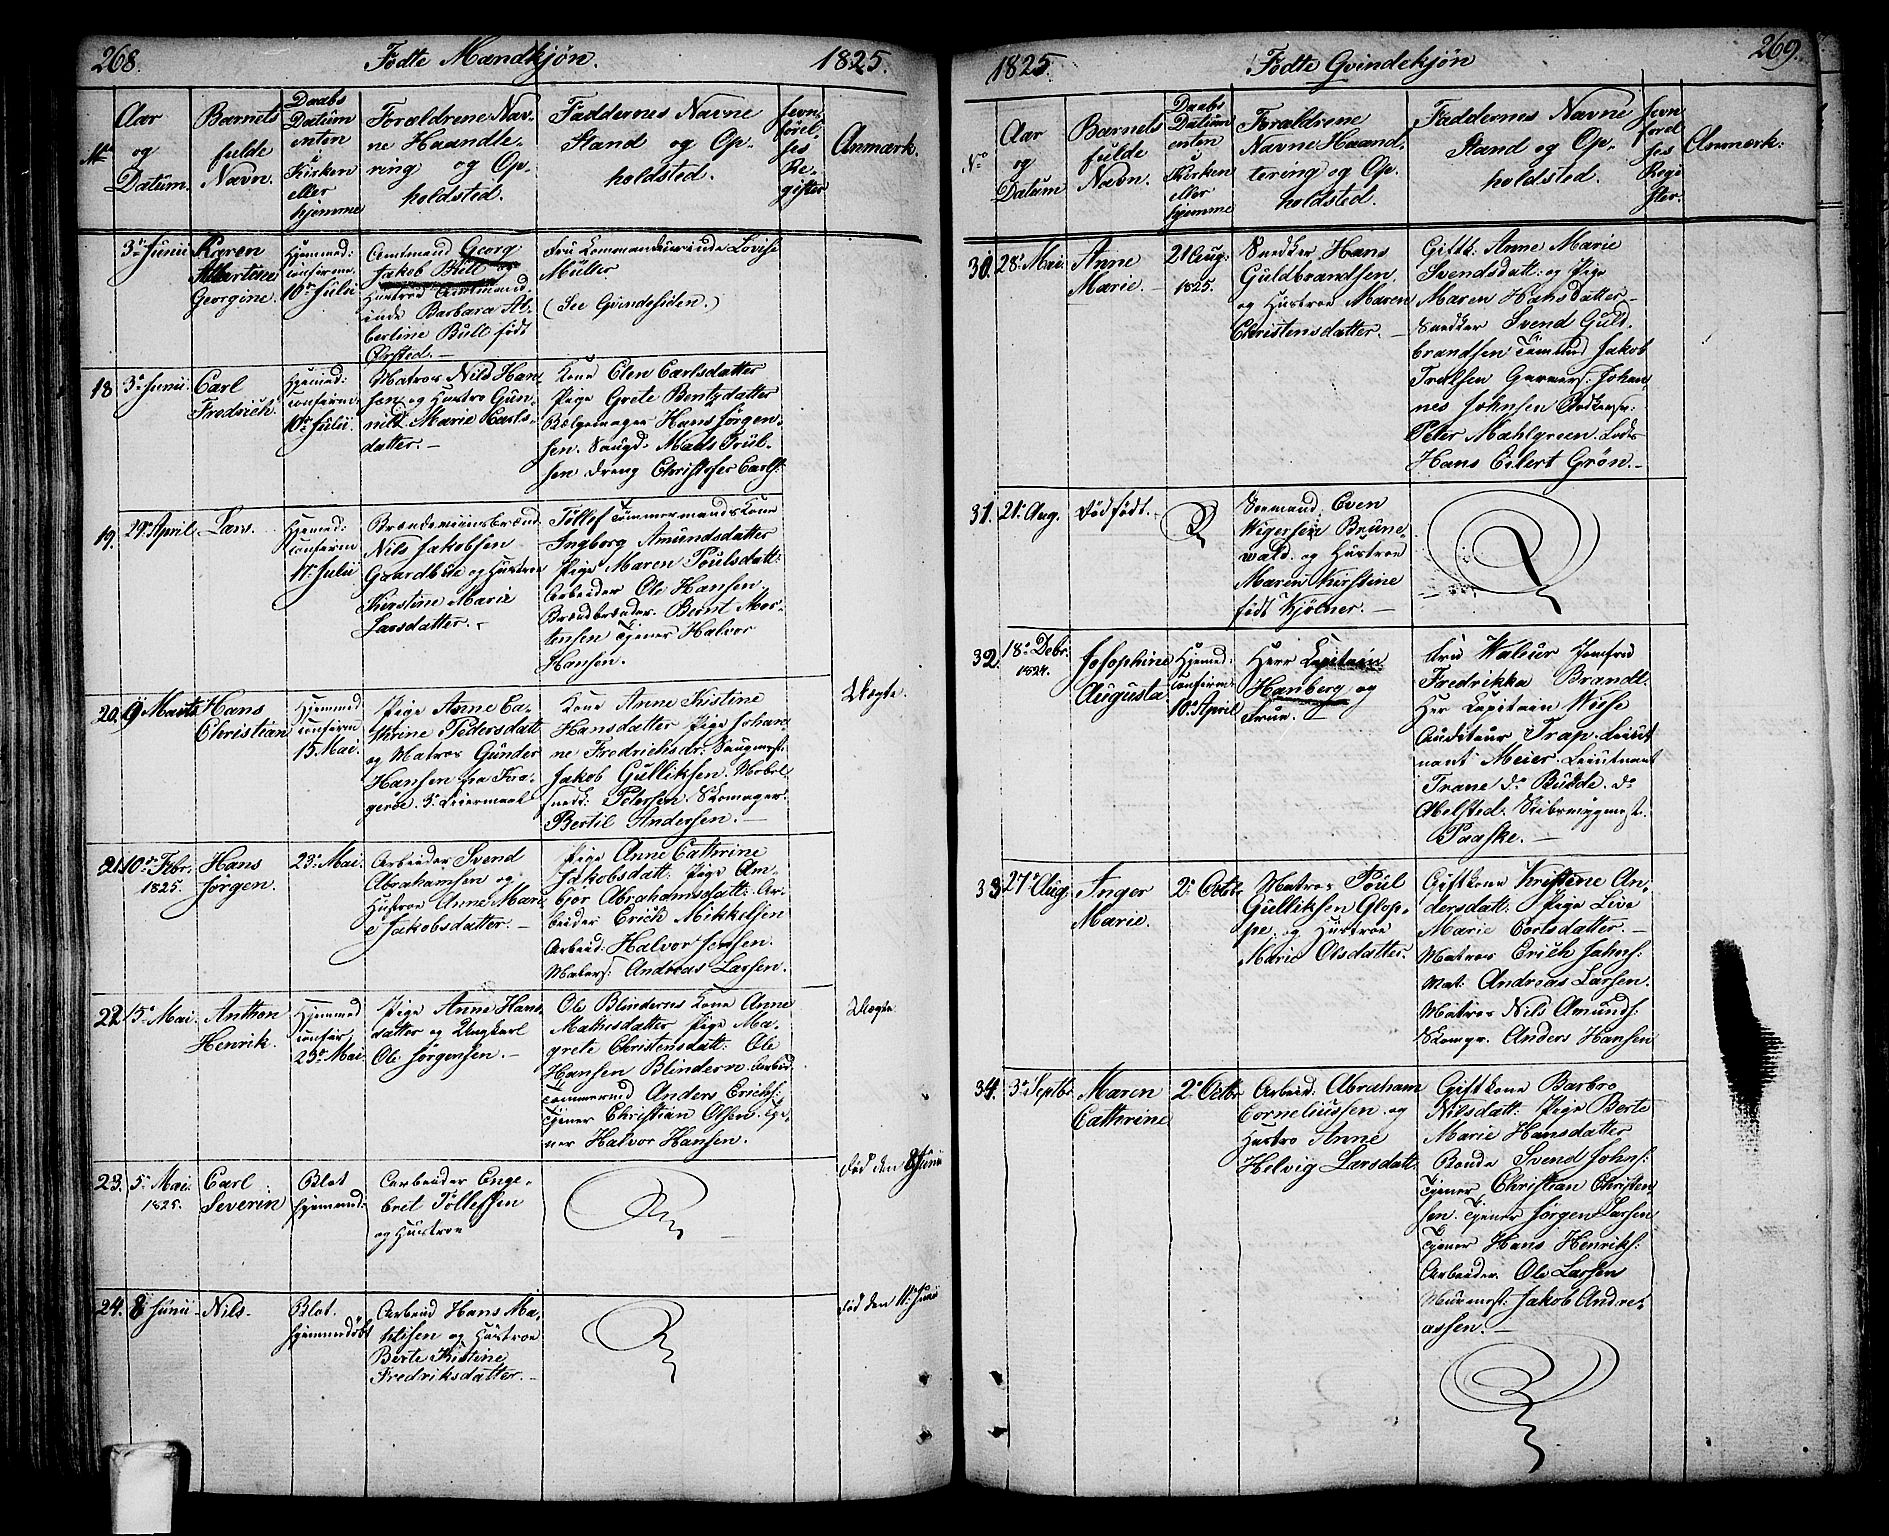 268.
Fødte Mandkjøn.
1825.
No
Aar
og
Datum.
Barnets
fulde
Navn.
Daabs
Datum
enten
i
Kirken
eller
hjemme
Forældrene Nav-
ne Haandte-
ring og Op-
holdsted.
Faddernes Navne
Stand og Op-
holdsted.
Anmærk.
3de Junii
Karen
Albertine
Georgine.
Hjemmed:
confirm:
10de Julii
Amtmand Georg
Jakob Bull og
Hustroe Amtmand-
inde Barbara Al-
bertine Bull født
Ørsted.
Fru Commandeurinde Lovise
Müller
(See Qvindesiden.)
18
3de Junii
Carl
Fredrich.
Hjemmed:
confirm:
10de Julii.
Matros Nils Han-
sen og Hustro Gun-
nild Marie
datter.
Kone Elen Carlsdatter
Pige Grete Bentzdatter
Hans Jørgen-
sen. Mads Trul-
sen Dreng Christofer Carls.
19.
29de April
Lars.
Hjemmed:
confirm
17de Julii
Nils Jakobsen
og Hustroe
Kirstine Marie
Larsdatter.
Tollef Tømmermands Kone
Ingborg Amundsdatter
Pige Maren Poulsdatt:
Arbeider Ole Hansen
Bernt Mor-
tensen Tjener Halvor
Hansen.
20.
9 Marts
Hans
Christian
Hjemmed
confirm
15 Mai.
Pige Anne Ca-
thrine Pedersdatt
og Matros Gunder
Hansen fra Kra-
gerøe. 3de Leiermaal
Kone Anne Kistine
Hansdatter Pige Johan-
ne Fredrichsdr:
Jakob Gulliksen.
Petersen. Skomager:
Bertil Andersen.
Uægte.
21.
10de Febr.
1825.
Hans
Jørgen.
23de Mai.
Arbeider Svend
Abrahamsen og
Hustroe Anne Mari
e Jakobsdatter.
Pige Anne Cathrine
Jakobsdatt: Pige Am-
bjør Abrahamsdatt: Ar-
beider Erich Mikkelsen
Arbeid: Halvor Jensen.
Andreas Larsen.
22
15de Mai.
Anthon
Henrik.
Hjemmed
confir:
23de Mai.
Pige Anne Hans-
datter og Ungkarl
Ole Jørgensen.
Ole Blinderns Kone Anne
Mathisdatter Pige Ma-
grete Christensdatt: Ole
Hansen Blindern. Arbeid.
Tømmermd Anders Erichs:
Tjener Christian Olsen. Tje-
ner Halvor Hansen.
Uægte
23.
5de Mai.
1825.
Carl
Severin
Blot
hjemmed:
Arbeider Enge-
bret Tollefsen
og Hustroe
død den 8 Junii
24.
8 Junii
Nils.
Blot.
hjemmedøbt
Arbeid Hans Ma-
thisen og Hustroe
Berte Kistine
Fredriksdatter.
død den 11te Junii
1825
Fødte Qvindekjøn
269.
No
Aar
og
Datum
Barnets
fulde
Navn.
Daabs
Datum
enten
i Kirken
eller
hjemme
Forældrene
Navne Haand-
tering og Op-
holdsted.
Faddernes Navne
Stand og Op-
holdsted.
Anmærk:
30.
28de Mai.
Anne
Marie.
21 Aug:
1825.
Snedker Hans
Guldbrandsen.
og Hustroe Maren
Christensdatter.
Giftk: Anne Marie
Svendsdatt: og Pige
Maren Hansdatter
Snedker Svend Guld-
brandsen Jakob
Trulsen Garvers: Johan-
nes Johnsen
Peter Mahlgreen. Lods
Hans Eilert Grøn.
31.
21de Aug.
Dødfødt.
Even
Brune-
wald og Hustroe
Maren Kirstine
født Kjølner.
32.
18de Debr.
1824.
Josephine
Augusta
Hjemmed:
confirm:
10de April
Herr Kapitain
Hanberg og
Frue.
Fru Waleur Jomfru
Fredrikka Brandt.
Herr Kapitain Wiese
Auditeur Trap. Lieut-
nant Meier. Lieutnant
Trane do. Budde. do
Abelsted.
Paaske.
33.
27de Aug.
Inger
Marie.
2de Octbr
Matros Poul
Gulliksen Glop-
pe og Hustroe
Marie Olsdatter.
Giftkone Kristine An-
dersdatt: Pige Live
Marie Corlsdatter.
Matros Erich Johns:
Mat: Andrias Larsen.
Matros Nils Amunds:
Skomgr. Anders Hansen
34.
3de Septbr
Maren
Cathrine
2de Octbr
Arbeid. Abraham
Corneliussen og
Hustro Anne
Helvig Larsdatt.
Giftkone Barbro
Nilsdatt: Pige Berte
Marie Hansdatter
Bonde Svend Johns:
Tjener Christian Christen-
sen. Tjener Jørgen Larsen
Tjener Hans Henriks:
Arbeider Ole Larsen
Jakob Andre-
assen.